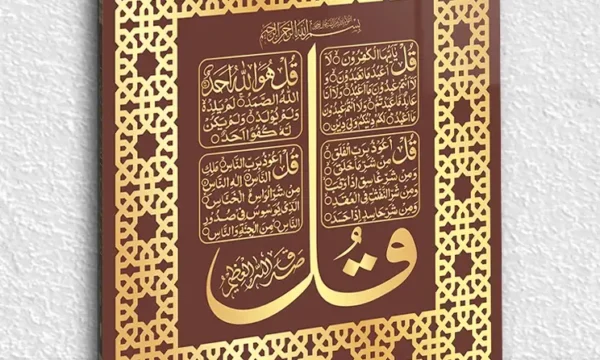 بسم الله الرحمن الرحيم
قُلْ يٰٓاَيُّهَا الْكٰفِرُوْنَ لَآ
اَعْبُدُ مَا تَعْبُدُوْنَ
وَلَآ اَنْتُمْ عٰبِدُوْنَ مَآ اَعْبُدُ وَلَآ اَنَا
عَابِدٌ مَّا عَبَدْتُّمْ وَلَآ اَنْتُمْ عٰبِدُوْنَ
مَآ اَعْبُدُ لَكُمْ دِيْنُكُمْ وَلِيَ دِيْنِ
قُلْ هُوَ اللّٰهُ اَحَدٌ
اَللّٰهُ الصَّمَدُ لَمْ يَلِدْ
وَلَمْ يُوْلَدْ وَلَمْ يَكُنْ
لَّهٗ كُفُوًا اَحَدٌ
قُلْ اَعُوْذُ بِرَبِّ الْفَلَقِ
مِنْ شَرِّ مَا خَلَقَ
وَمِنْ شَرِّ غَاسِقٍ اِذَا وَقَبَ
وَمِنْ شَرِّ النَّفّٰثٰتِ فِي الْعُقَدِ
وَمِنْ شَرِّ حَاسِدٍ اِذَا حَسَدَ
قُلْ اَعُوْذُ بِرَبِّ النَّاسِ مَلِكِ
النَّاسِ اِلٰهِ النَّاسِ
مِنْ شَرِّ الْوَسْوَاسِ الْخَنَّاسِ
الَّذِيْ يُوَسْوِسُ فِيْ صُدُوْرِ
النَّاسِ مِنَ الْجِنَّةِ وَالنَّاسِ
قُل
صدق الله العظيم